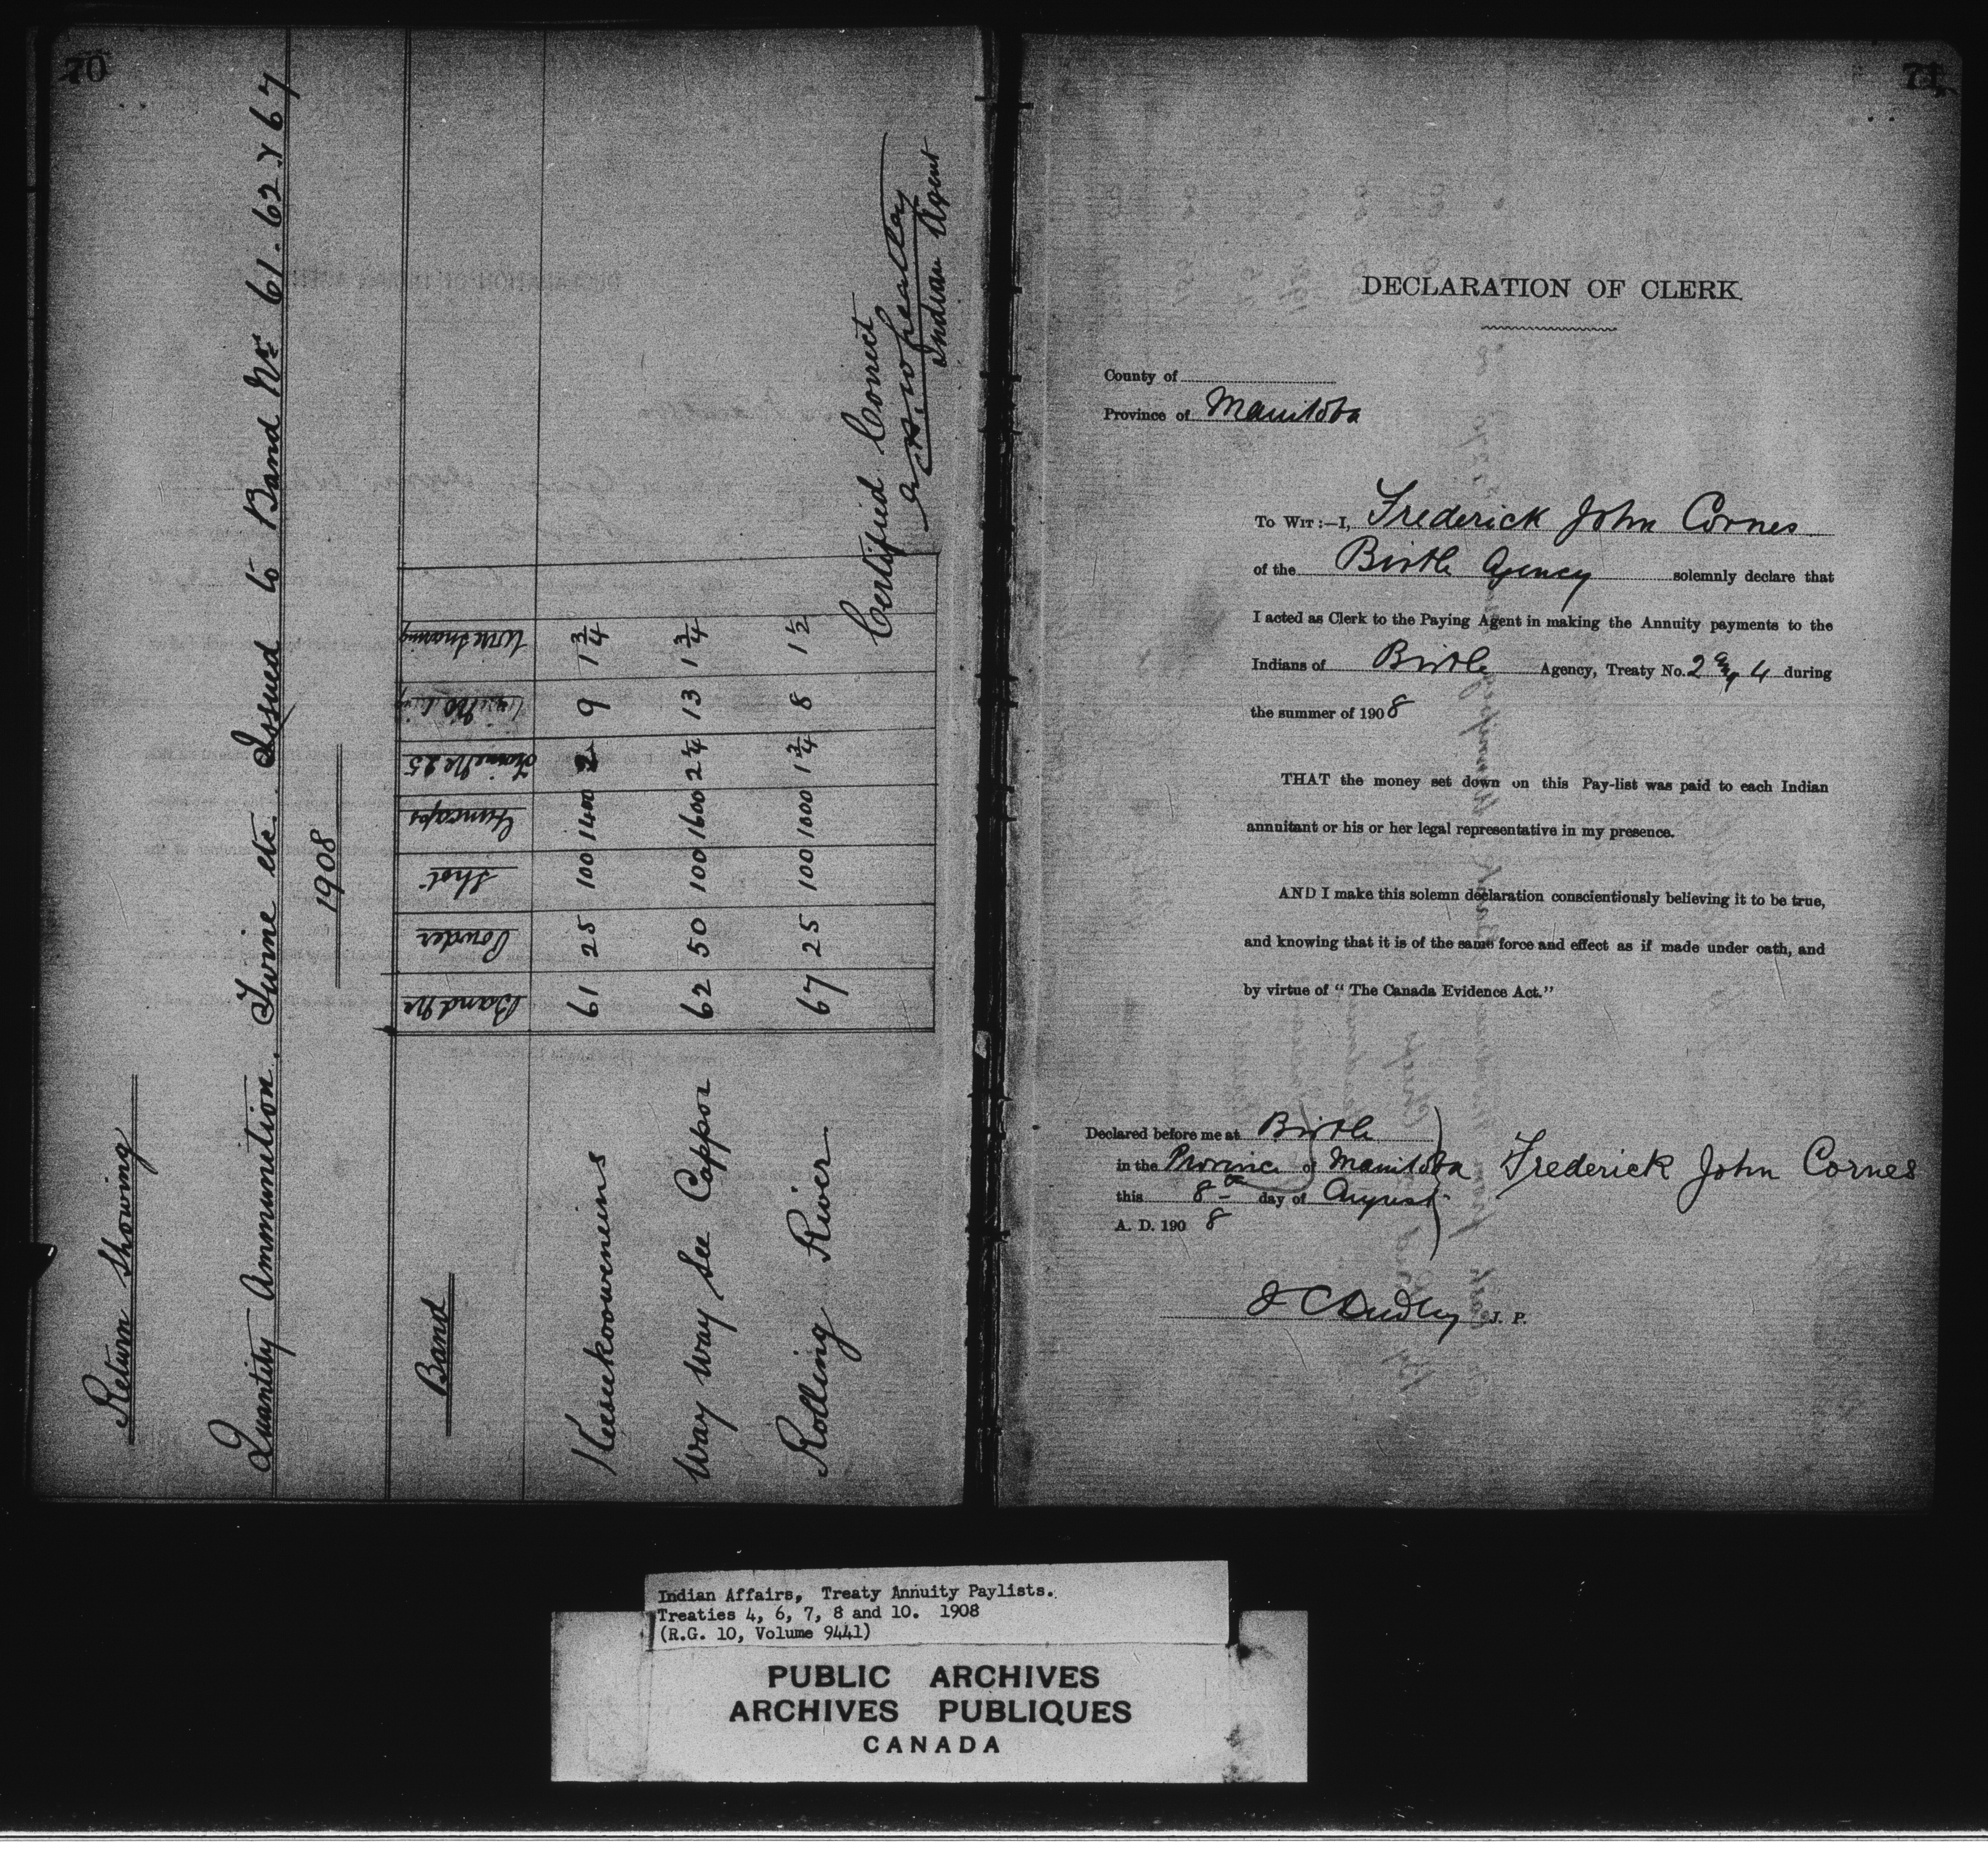 70
Return Showing
Quantity Ammunition, Twine etc. Issued to Band Nr. 61. 62 & 67
1908
Band Band Nr Powder Shot Guncaps Twine Nr 25 Wire Snaring
Keeseekoowenins 61 25 100 1400 2 9 1 3/4
Way Way See Cappor 62 50 100 1600 2 1/4 13 1 3/4
Rolling River 67 25 100 1000 1 3/4 8 1 1/2
Certified Correct
Wheatley
Indian Agent
71
DECLARATION OF CLERK.
County of
Province of Manitoba
To Wit:—I, Frederick John Cornes
of the Birtle Agency solemnly declare that
I acted as Clerk to the Paying Agent in making the Annuity payments to the
Indians of Birtle Agency, Treaty No. 2 and 4 during
the summer of 1908
THAT the money set down on this Pay-list was paid to each Indian
annuitant or his or her legal representative in my presence.
AND I make this solemn declaration conscientiously believing it to be true,
and knowing that it is of the same force and effect as if made under oath, and
by virtue of "The Canada Evidence Act."
Declared before me at Birtle
in the Province of Manitoba
this 8th day of August
A. D. 1908
Frederick John Cornes
J C Dudley J. P.
Indian Affairs, Treaty Annuity Paylists.
Treaties 4, 6, 7, 8 and 10. 1908
(R.G. 10, Volume 9441)
PUBLIC ARCHIVES
ARCHIVES PUBLIQUES
CANADA